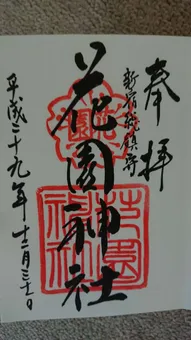 奉拝
新宿総鎮守
花園神社
平成二十九年十二月三十日
花園神社